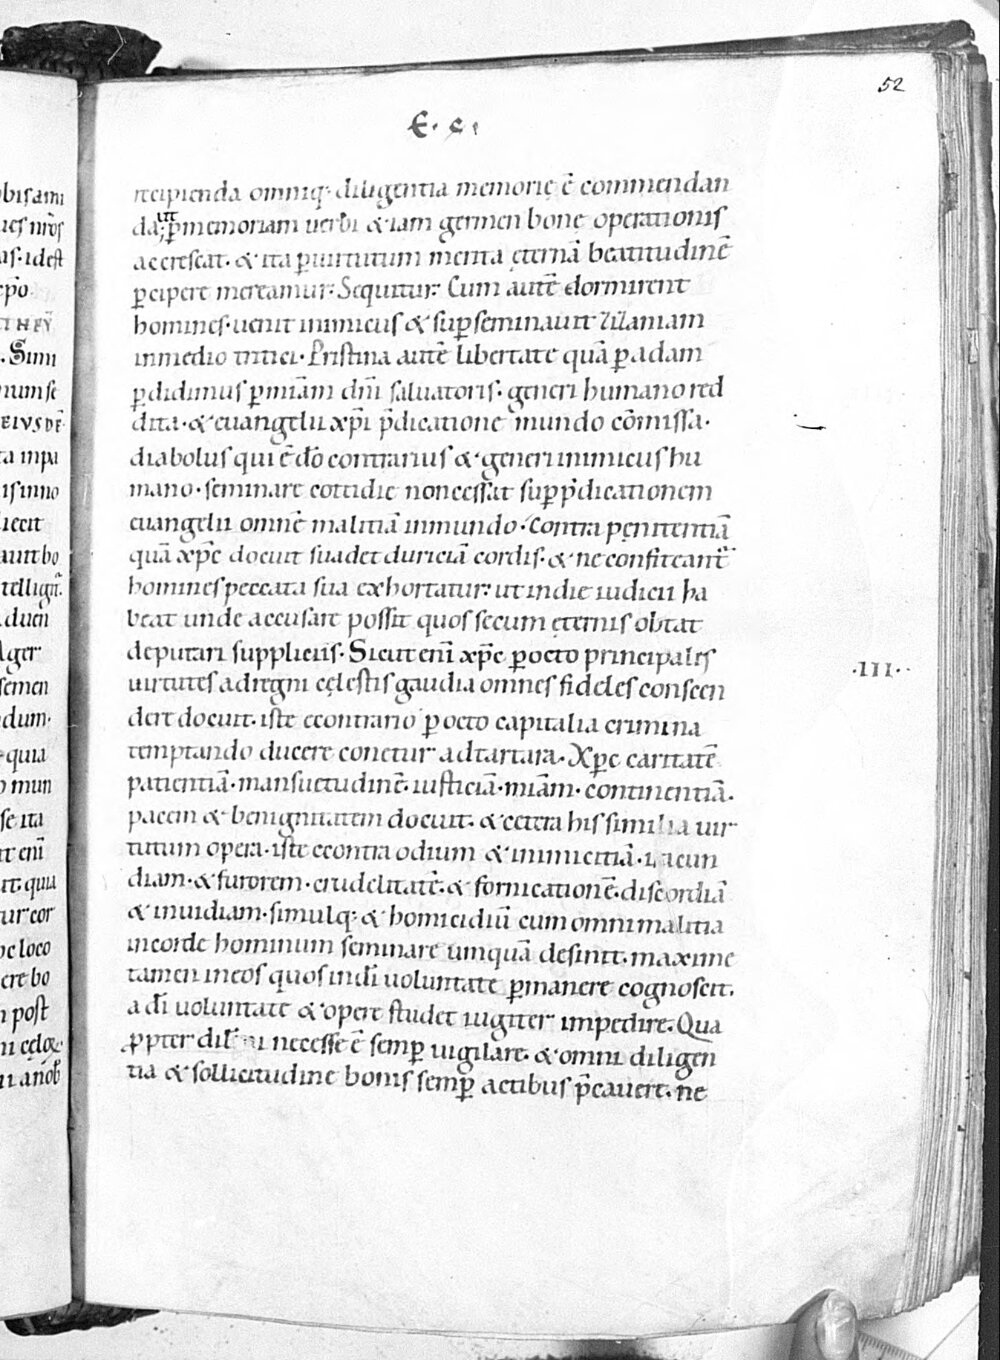 52
E. C.
recipienda omniq; diligentia memorię ē commendan
da; ut p̱ memoriam uerbi & iam germen bonę operationis
accrescat. & ita p̱ uirtutum merita ęternā beatitudinē
p̱cipere mereamur. Sequitur. Cum autē dormirent
homines. uenit inimicus & sup̱seminauit zizaniam
inmedio tritici. Pristina autē libertate quā p̱ adam
p̱didimus p̱ mīam dn̄i saluatoris. generi humano red
dita. & euangelii xp̄i p̄dicatione mundo cōmissa.
diabolus qui ē dō contrarius & generi inimicus hu
mano. seminare cottidie non cessat sup̱ p̄dicationem
euangelii omnē malitiā inmundo. contra pęnitentiā
quā xp̄c docuit suadet duriciā cordis. & ne confiteant᷒
homines peccata sua exhortatur. ut indie iudicii ha
beat unde accusare possit quos secum ęternis obtat
deputari suppliciis. Sicut enī xp̄c p̱ octo principales
·III·
uirtutes adregni cęlestis gaudia omnes fideles conscen
dere docuit. iste econtrario p̱ octo capitalia crimina
temptando ducere conetur adtartara. Xp̄c caritatē
patientiā. mansuetudinē. iusticiā. mīam. continentiā.
pacem & benignitatem docuit. & cetera his similia uir
tutum opera. iste econtra odium & inimicitiā. iracun
diam. & furorem. crudelitatē. & fornicationē. discordiā
& inuidiam. simulq; & homicidiū cum omni malitia
incorde hominum seminare umquā desinit. maxime
tamen ineos quos indī uoluntate p̱manere cognoscit.
a dī uoluntate & opere studet iugiter impedire. Qua
p̱pter necesse ē semp̱ uigilare. & omni diligen
tia & sollicitudine bonis semp̱ actibus p̄cauere. ne